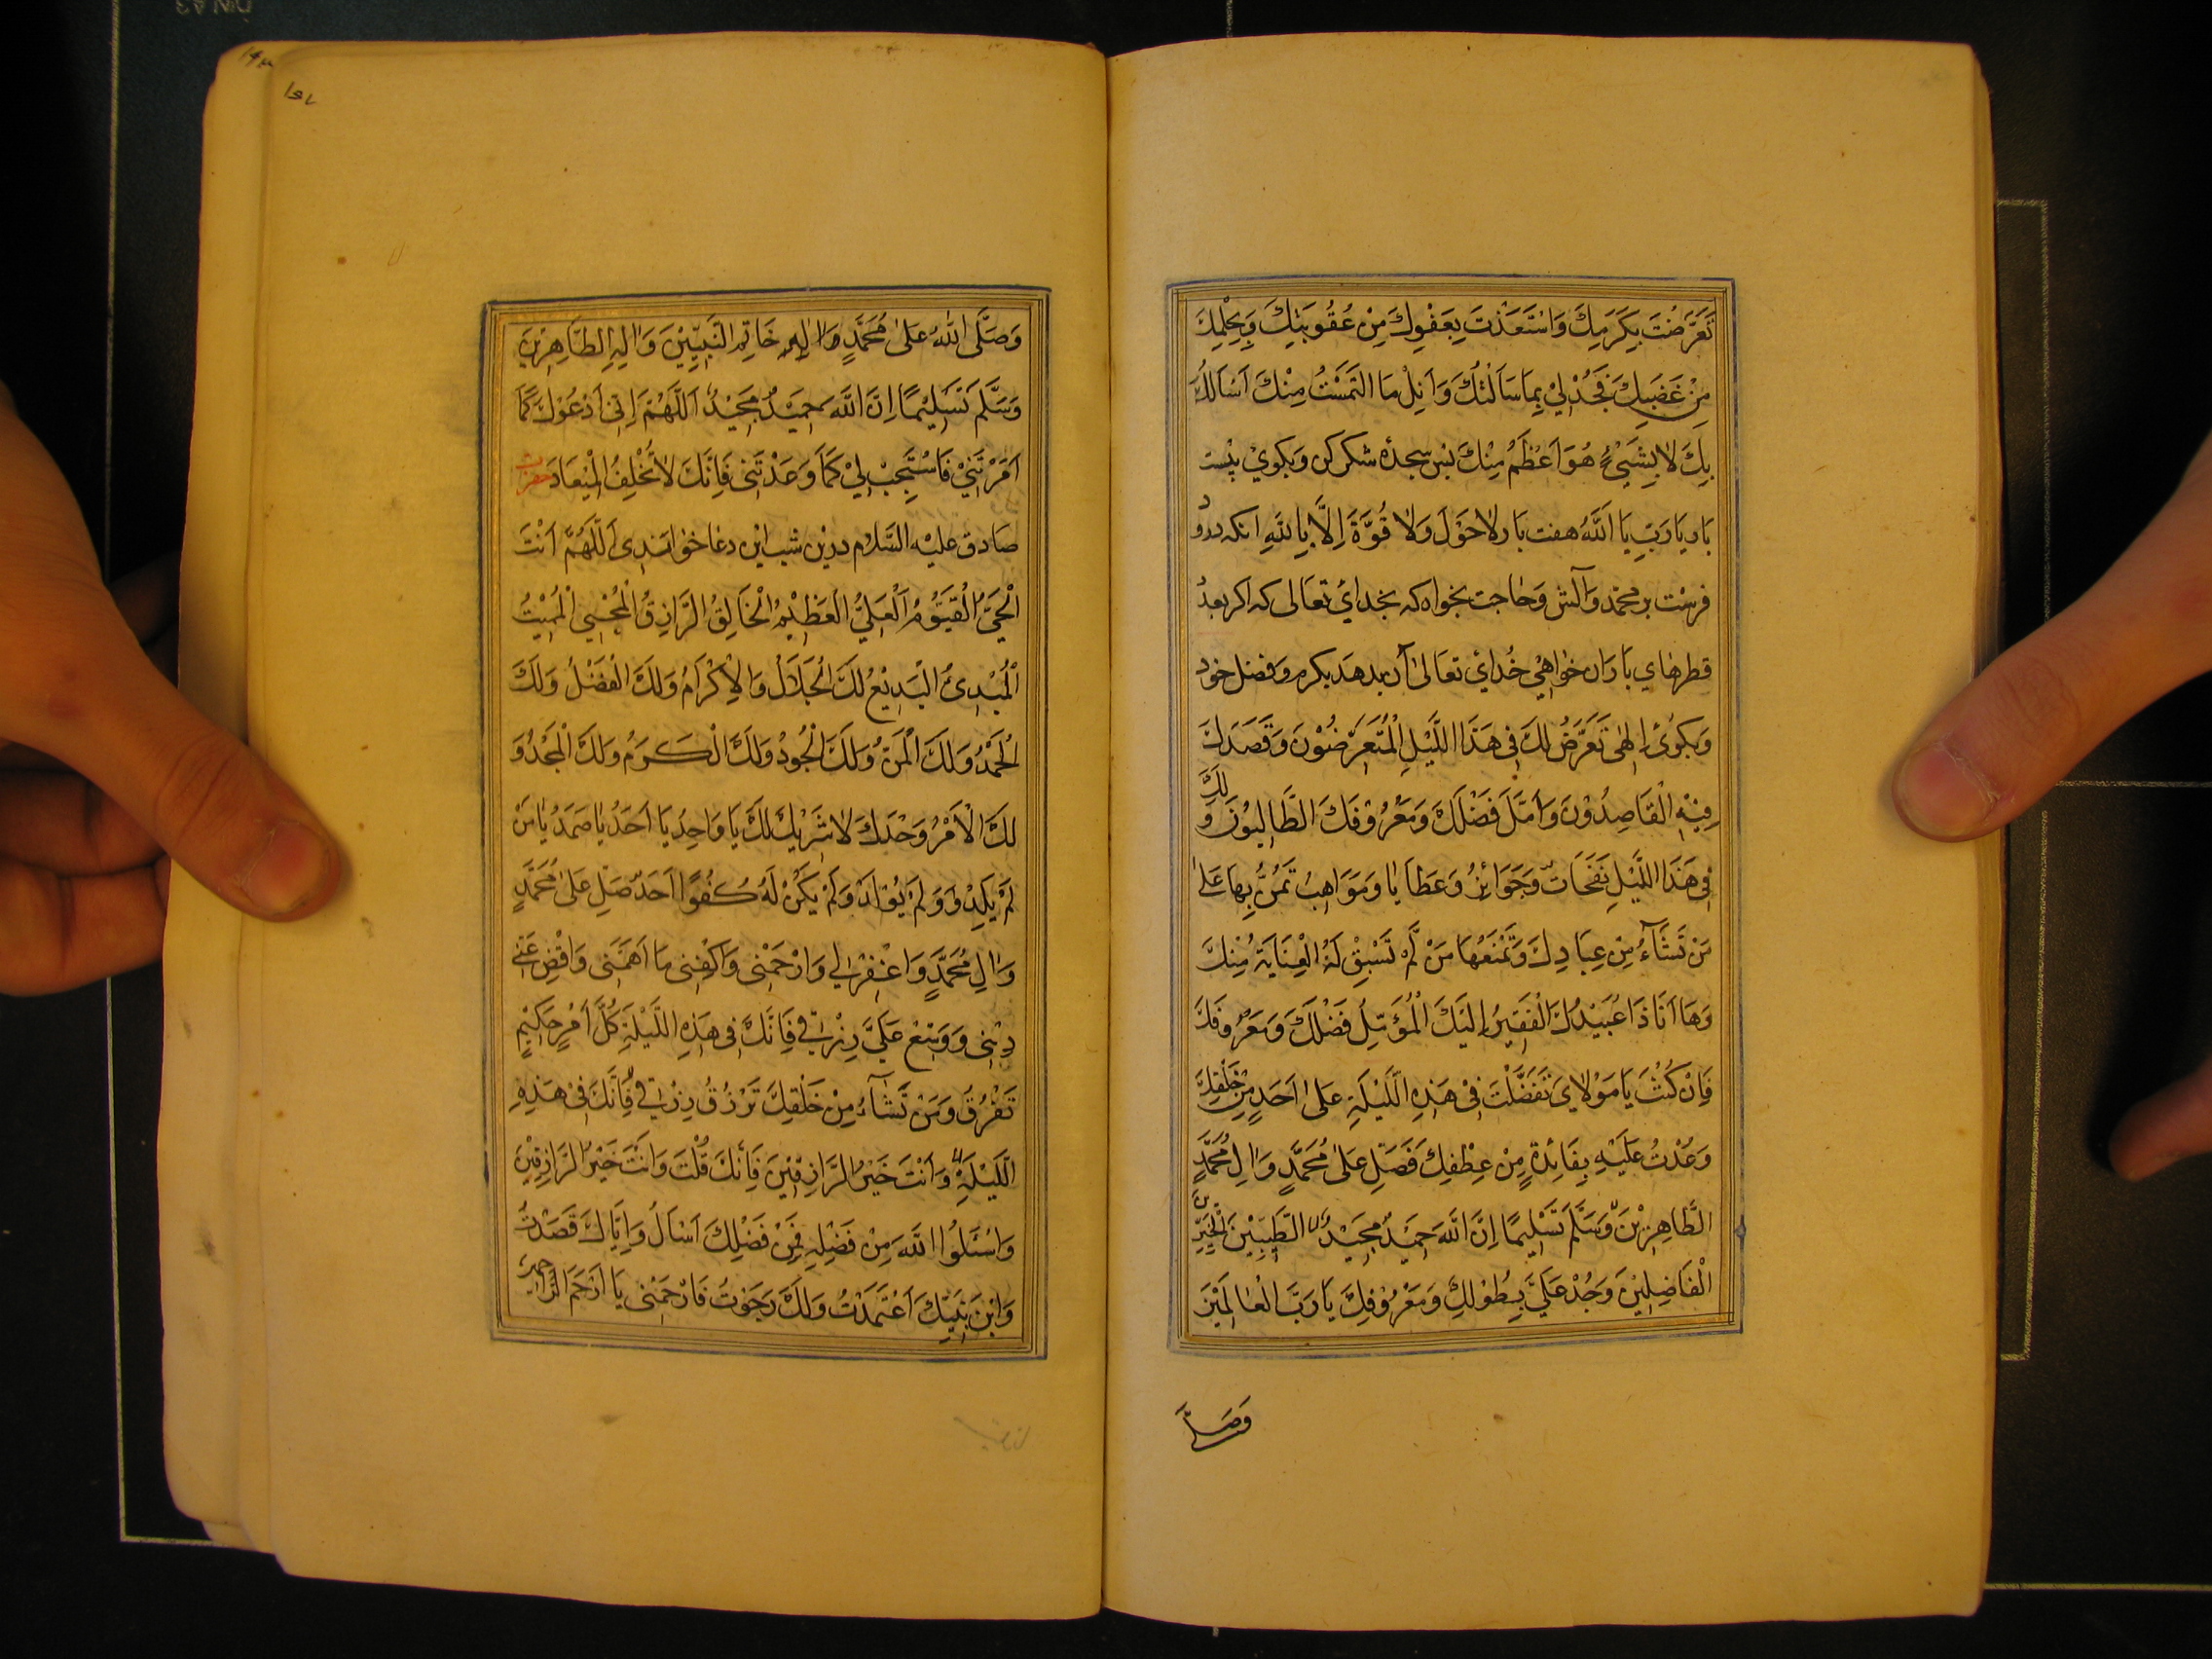 تَعَرَّضْتَ بِكَرَمِكَ وَاسْتَعَذْتَ بِعَفْوِكَ مِنْ عُقُوبَتِكَ وَبِحِلْمِكَ
مِنْ غَضَبِكَ فَجُدْ لِيْ بِمَا سَاَلْتُكَ وَاَنِلْ مَا الْتَمَسْتُ مِنْكَ اَسْاَلُكَ
بِكَ لَا بِشَيْءٍ هُوَ اَعْظَمُ مِنْكَ پس سجدهٔ شكر كن وبكوى بيست
بار يَا رَبِّ يَا اَللّٰهُ هفت بار لَا حَوْلَ وَلَا قُوَّةَ اِلَّا بِاللّٰهِ انكه درود
فرست بر محمّد وآلش وحاجت بخواه كه بخداى تعالى كه اكر بعدد
قطرهاى باران خواهى خداى تعالى آن بدهد بكرم وفضل خود
وبكوى اِلٰهِي تَعَرَّضَ لَكَ فِي هَذَا اللَّيْلِ الْمُتَعَرِّضُوْنَ وَقَصَدَكَ
فِيْهِ الْقَاصِدُوْنَ وَاَمَّلَ فَضْلَكَ وَمَعْرُوْفَكَ الطَّالِبُوْنَ وَ لَكَ
فِي هَذَا اللَّيْلِ نَفَحَاتٌ وَجَوَائِزُ وَعَطَايَا وَمَوَاهِبُ تَمُنُّ بِهَا عَلٰى
مَنْ تَشَآءُ مِنْ عِبَادِكَ وَتَمْنَعُهَا مَنْ لَمْ تَسْبِقْ لَهُ الْعِنَايَةُ مِنْكَ
وَهَا اَنَا ذَا عُبَيْدُكَ الْفَقِيْرُ اِلَيْكَ الْمُؤَمِّلُ فَضْلَكَ وَمَعْرُوفَكَ
فَاِنْ كُنْتَ يَا مَوْلَايَ تَفَضَّلْتَ فِيْ هَذِهِ اللَّيْلَةِ عَلٰى اَحَدٍ مِنْ خَلْقِكَ
وَعُدْتَ عَلَيْهِ بِفَائِدَةٍ مِنْ عِطْفِكَ فَصَلِّ عَلٰى مُحَمَّدٍ وَاٰلِ مُحَمَّدٍ
الطَّاهِرِيْنَ وَسَلَّمَ تَسْلِيمًا اِنَّ اللّٰهَ حَمِيْدٌ مَجِيْدٌ الطَّيِّبِيْنَ الْخَيِّرِينَ
الْفَاضِلِيْنَ وَجُدْ عَلَيَّ بِطَوْلِكَ وَمَعْرُوْفِكَ يَا رَبَّ الْعَالَمِيْنَ
وَصَلَّى
وَصَلَّى اللّٰهُ عَلٰى مُحَمَّدٍ وَاٰلِهِ خَاتِمِ النَّبِيِّيْنَ وَاٰلِهِ الطَّاهِرِيْنَ
وَسَلَّمَ تَسْلِيْمًا اِنَّ اللّٰهَ حَمِيْدٌ مَجِيْدٌ اَللّٰهُمَّ اِنِّى اَدْعُوْكَ كَمَا
اَمَرْتَنِيْ فَاسْتَجِبْ لِيْ كَمَا وَعَدْتَنِى فَاِنَّكَ لَا تُخْلِفُ الْمِيْعَادَ حضرت
صادق عليه السّلام درين شب اين دعا خواندى اَللّٰهُمَّ اَنْتَ
الْحَيُّ الْقَيُّوْمُ الْعَلِيُّ الْعَظِيْمُ الْخَالِقُ الرَّازِقُ الْمُحْيِي الْمُمِيْتُ
الْمُبْدِئُ الْبَدِيْعُ لَكَ الْجَلَالُ وَالْاِكْرَامُ وَلَكَ الْفَضْلُ وَلَكَ
الْحَمْدُ وَلَكَ الْمَنُّ وَلَكَ الْجُودُ وَلَكَ الْكَرَمُ وَلَكَ الْمَجْدُ وَ
لَكَ الْاَمْرُ وَحْدَكَ لَا شَرِيْكَ لَكَ يَا وَاحِدُ يَا اَحَدُ يَا صَمَدُ يَا مَنْ
لَمْ يَلِدْ وَلَمْ يُوْلَدْ وَلَمْ يَكُنْ لَهُ كُفُوًا اَحَدٌ صَلِّ عَلٰى مُحَمَّدٍ
وَاٰلِ مُحَمَّدٍ وَاغْفِرْ لِي وَارْحَمْنِى وَاكْفِنِى مَا اَهَمَّنِى وَاقْضِ عَنِّي
دِيْنِى وَوَسِّعْ عَلَيَّ رِزْقِي فَاِنَّكَ فِى هَذِهِ اللَّيْلَةِ كُلَّ اَمْرٍ حَكِيْمٍ
تَفْرُقُ وَمَنْ تَشَآءُ مِنْ خَلْقِكَ تَرْزُقُ رِزْقِي فَاِنَّكَ فِىْ هَذِهِ
اللَّيْلَةِ وَاَنْتَ خَيْرُ الرَّازِقِيْنَ فَاِنَّكَ قُلْتَ وَاَنْتَ خَيْرُ الرَّازِقِيْنَ
وَاسْئَلُوا اللّٰهَ مِنْ فَضْلِهِ فَمِنْ فَضْلِكَ اَسْاَلُ وَاِيَّاكَ قَصَدْتُ
وَابْنَ نَبِيِّكَ اعْتَمَدْتُ وَلَكَ رَجَوْتُ فَارْحَمْنِى يَا اَرْحَمَ الرَّاحِمِينَ